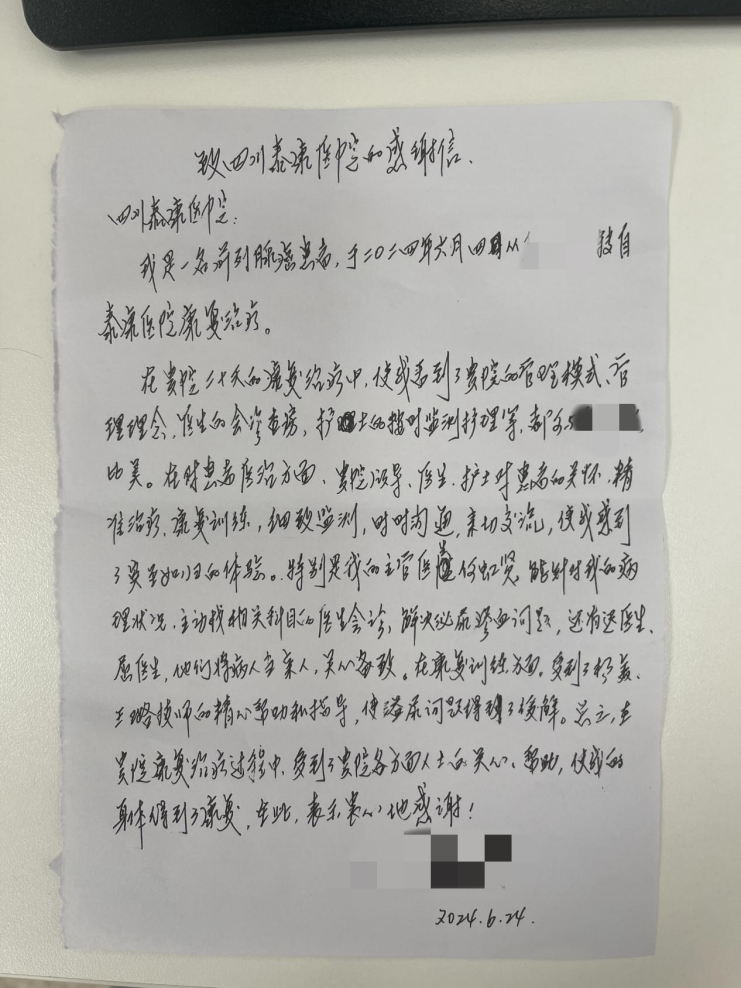 致四川泰康医院的感谢信.
四川泰康医院:
我是一名前列腺癌患者,于二0二四年六月四日从 转自
泰康医院康复治疗。
在贵院二十天的康复治疗中,使我看到了贵院的管理模式、管
理理念,医生的会诊查房,护士的按时监测护理等,都
比美。在对患者医治方面、贵院领导、医生、护士对患者的关怀、精
准治疗、康复训练,细致监测,时时沟通,亲切交流,使我感到
了宾至如归的体验。特别是我的主管医 何虹贤,能针对我的病
理状况,主动找相关科目的医生会诊,解决泌尿渗血问题,还有医生、
屈医生,他们将病人当亲人,关心备致。在康复训练方面,受到了
王璐技师的精心帮助和指导,使溢尿问题得到了缓解。总之,在
贵院康复治疗过程中,受到了贵院各方面人士的关心、帮助,使我的
身体得到了康复,在此,表示衷心地感谢!
2024.6.24.